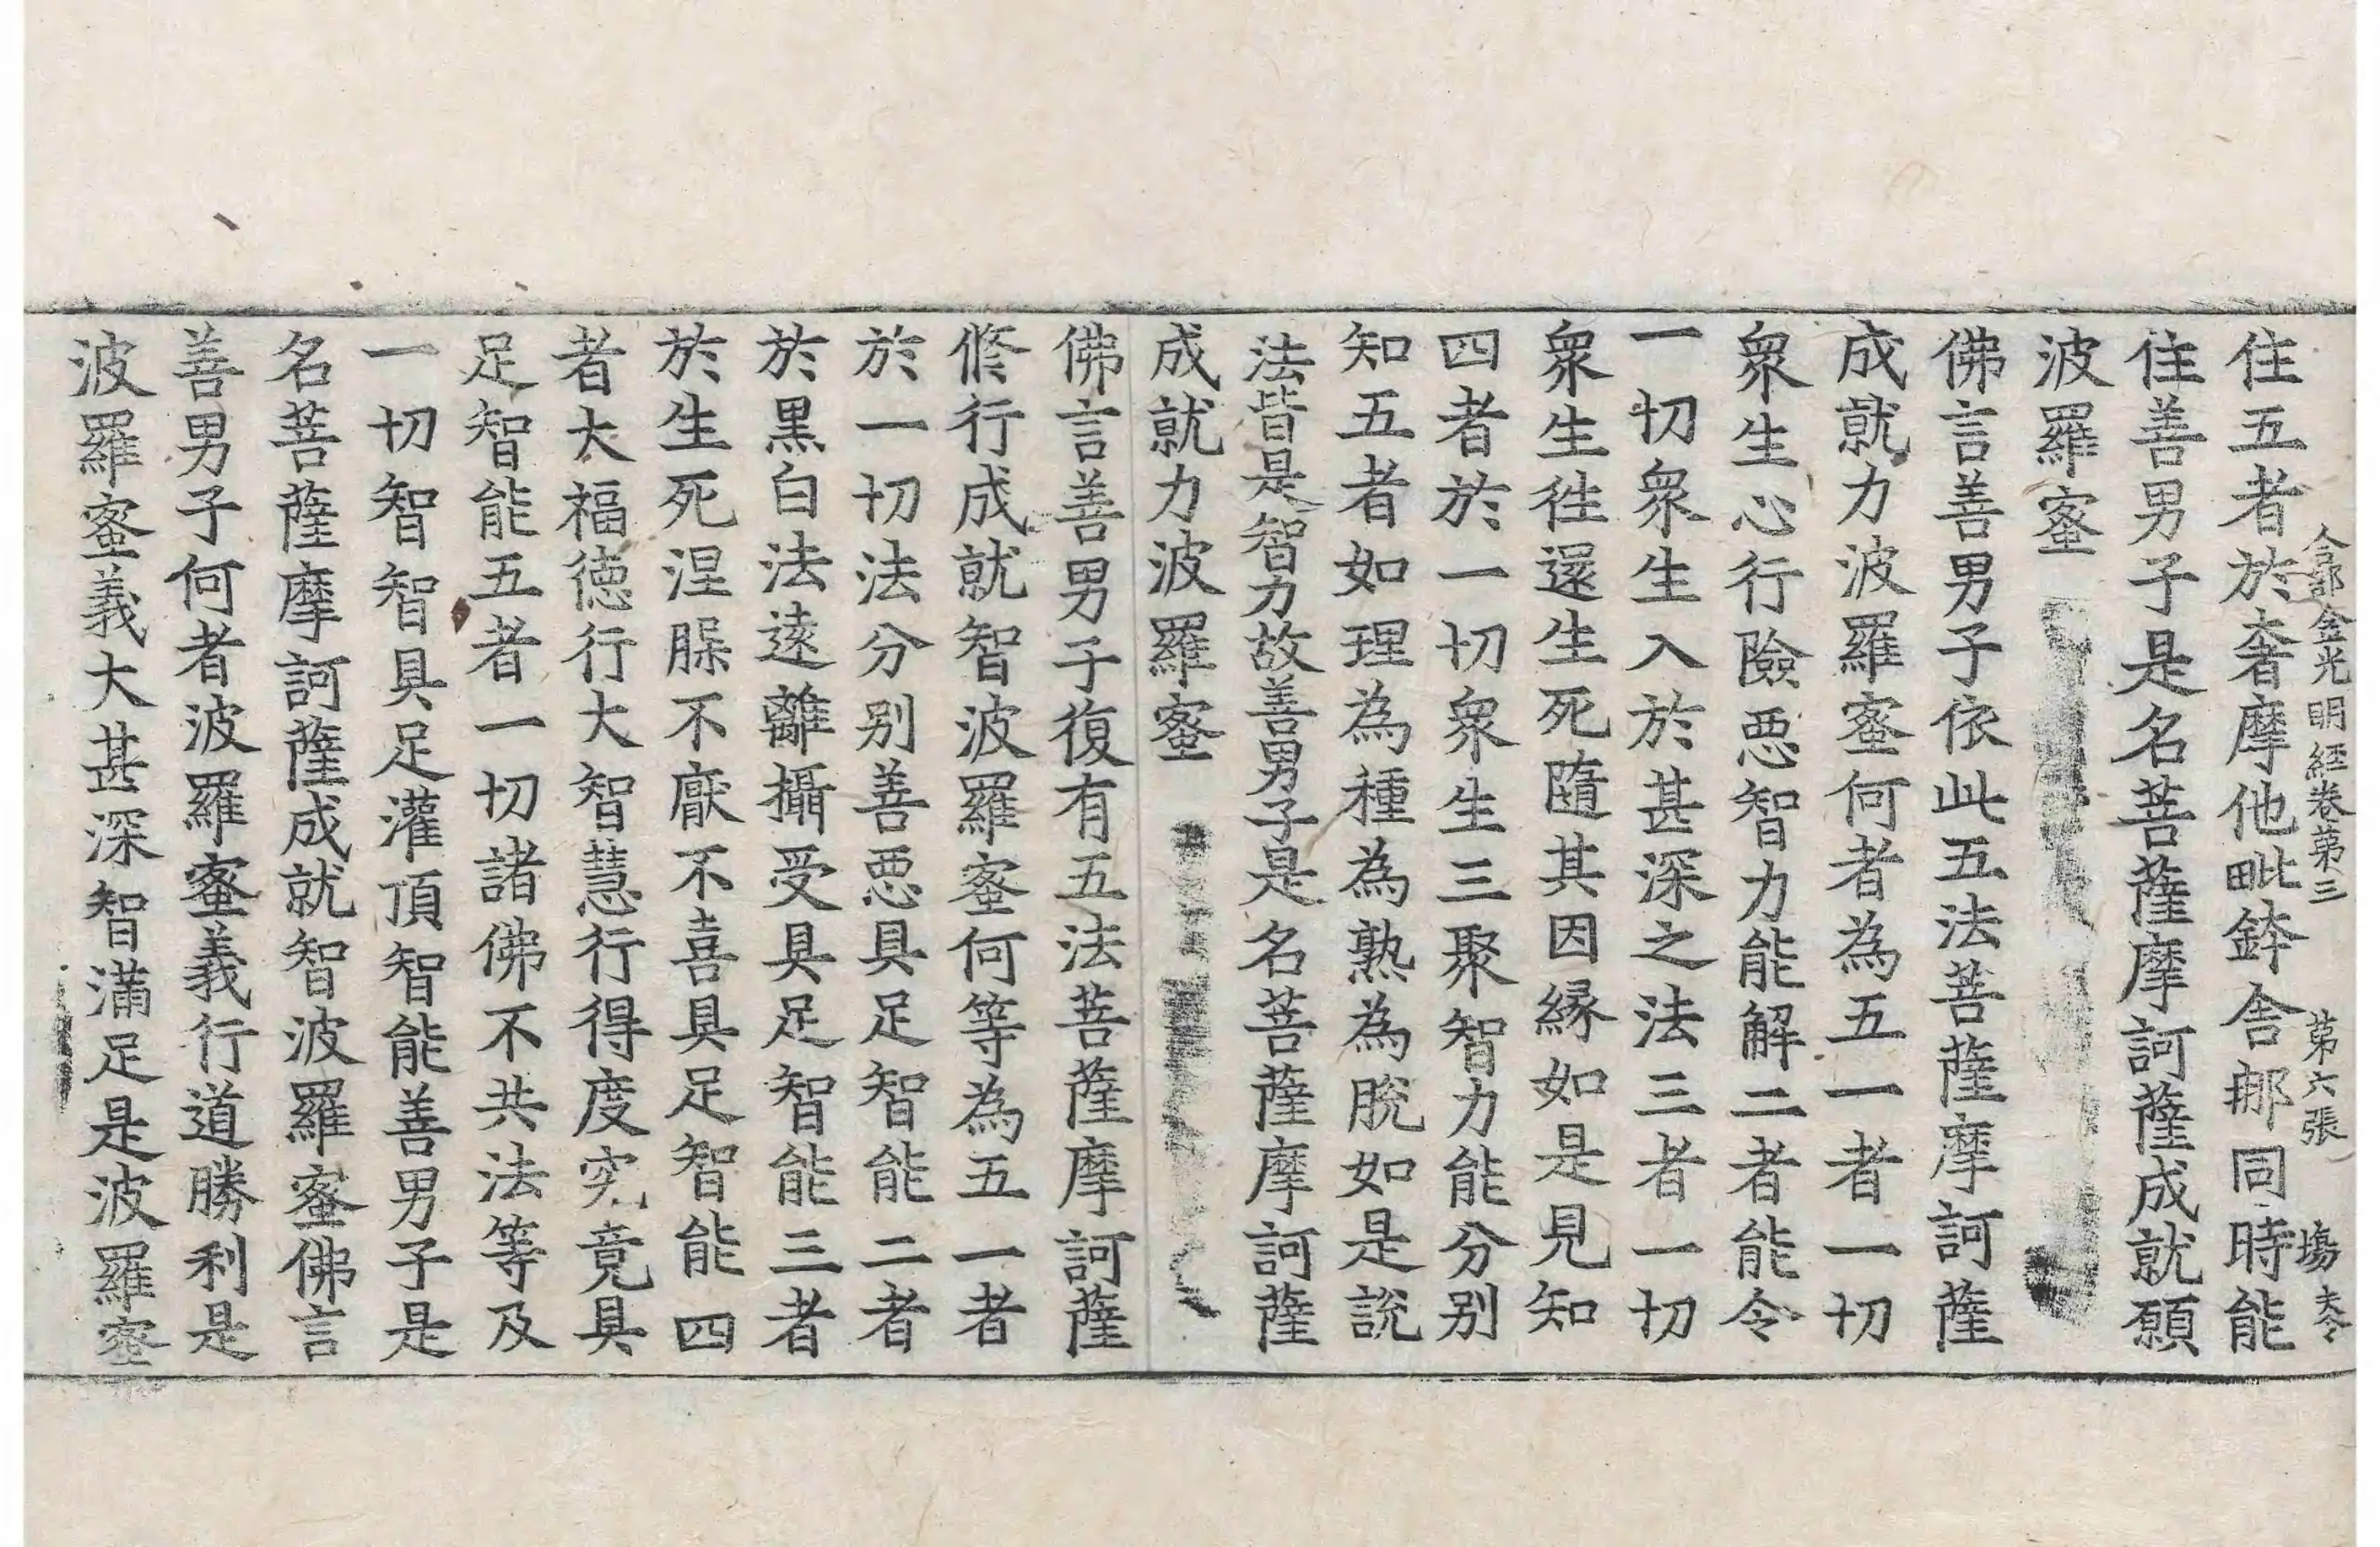 合部金光明經卷第三 第六張 塲
住五者於奢摩他毗鉢舍那同時能
住善男子是名菩薩摩訶薩成就願
波羅蜜
佛言善男子依此五法菩薩摩訶薩
成就力波羅蜜何者為五一者一切
衆生心行險惡智力能解二者能令
一切衆生入於甚深之法三者一切
衆生往還生死隨其因縁如是見知
四者於一切衆生三聚智力能分別
知五者如理為種為熟為脫如是說
法皆是智力故善男子是名菩薩摩訶薩
成就力波羅蜜
佛言善男子復有五法菩薩摩訶薩
修行成就智波羅蜜何等為五一者
於一切法分別善惡具足智能二者
於黒白法遠離攝受具足智能三者
於生死涅槃不厭不喜具足智能四
者大福德行大智慧行得度究竟具
足智能五者一切諸佛不共法等及
一切智智具足灌頂智能善男子是
名菩薩摩訶薩成就智波羅蜜佛言
善男子何者波羅蜜義行道勝利是
波羅蜜義大甚深智滿足是波羅蜜